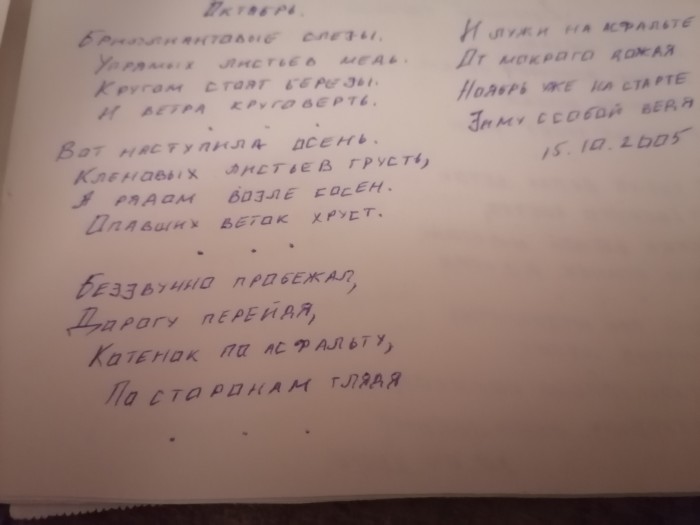 Октябрь.
Бриллиантовые слезы.
Упрямых листьев медь.
Кругом стоят березы.
И ветра круговерть.
. . .
Вот наступила осень.
Кленовых листьев грусть,
А рядом возле сосен.
Опавших веток хруст.
. . .
Беззвучно пробежал,
Дорогу перейдя,
Котенок по асфальту,
По сторонам глядя
. . .
И лужи на асфальте
От мокрого дождя
Ноябрь уже на старте
Зиму ссобой ведя
15.10.2005